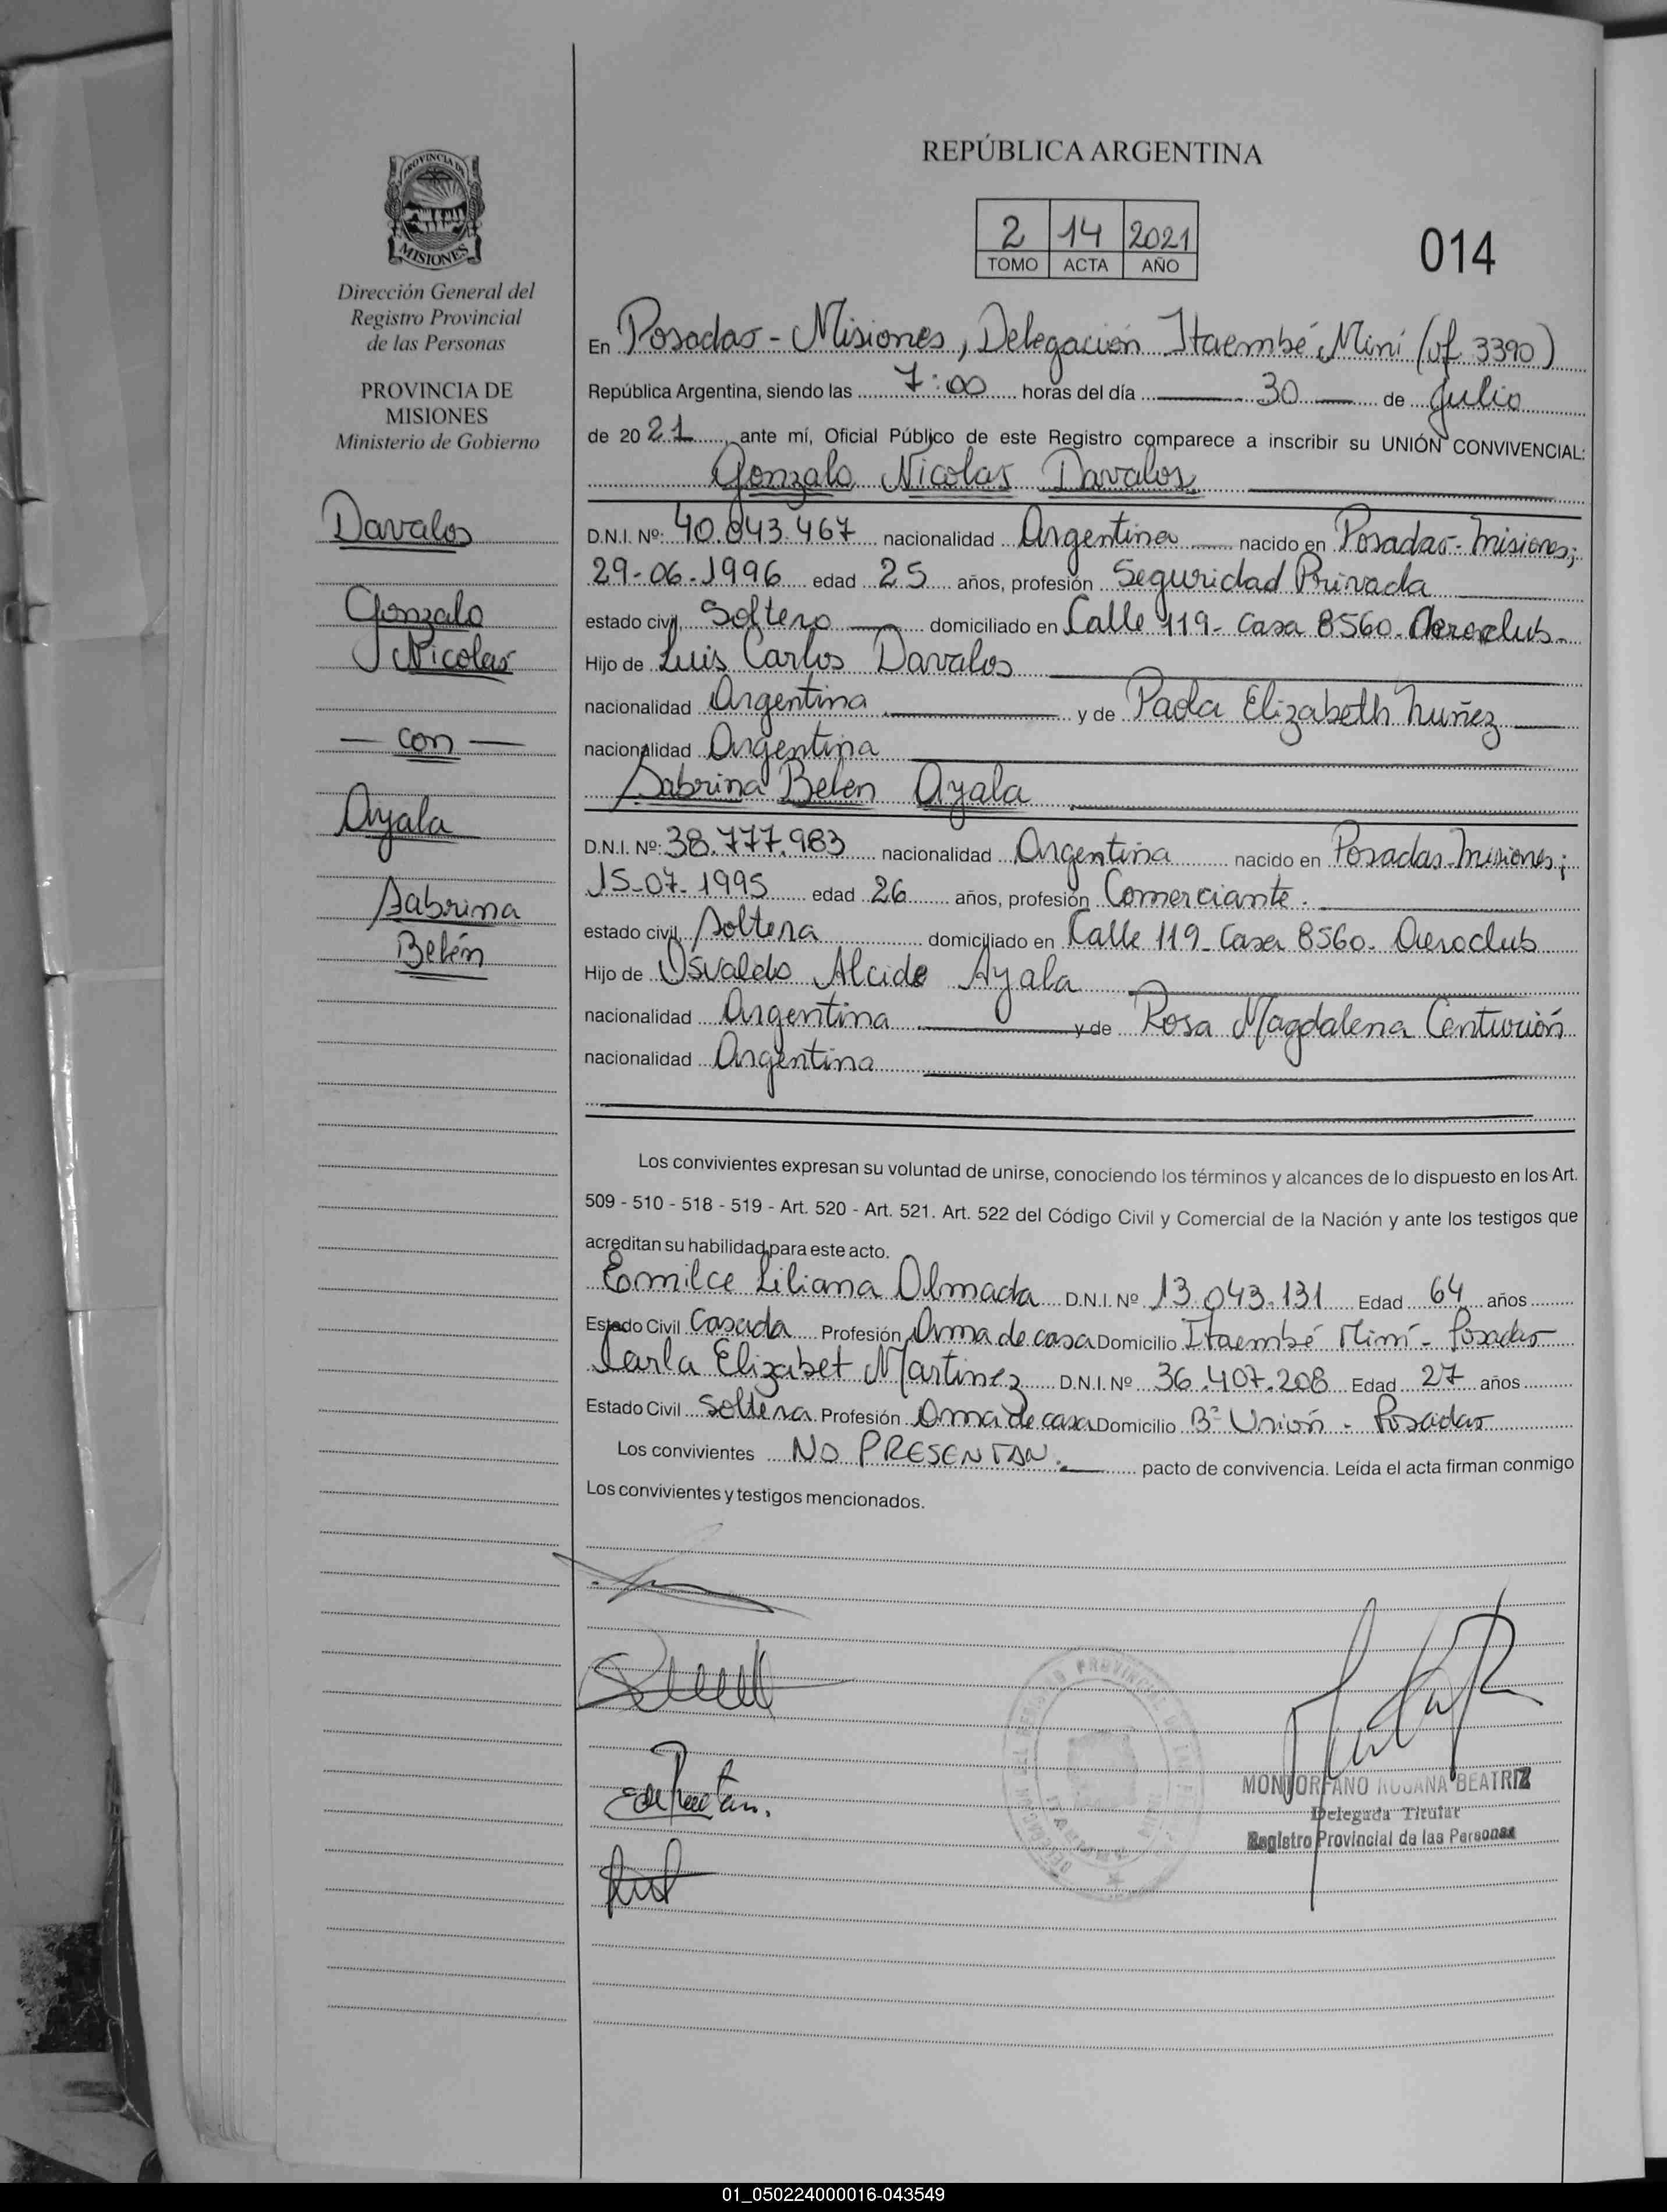 PROVINCIA DE
MISIONES
Dirección General del
Registro Provincial
de las Personas
PROVINCIA DE
MISIONES
Ministerio de Gobierno
Davalos
Gonzalo
Nicolas
— con —
Ayala
Sabrina
Belén
REPÚBLICA ARGENTINA
2 14 2021
TOMO ACTA AÑO
014
En Posadas - Misiones, Delegación Itaembé Miní (of. 3390)
República Argentina, siendo las 7:00 horas del día 30 de Julio
de 2021, ante mí, Oficial Público de este Registro comparece a inscribir su UNIÓN CONVIVENCIAL:
Gonzalo Nicolas Davalos
D.N.I. Nº: 40.043.467 nacionalidad Argentina nacido en Posadas - Misiones;
29-06-1996 edad 25 años, profesión Seguridad Privada
estado civil, Soltero domiciliado en Calle 119 - Casa 8560 - Aeroclub -
Hijo de Luis Carlos Davalos
nacionalidad Argentina y de Paola Elizabeth Nuñez
nacionalidad Argentina
Sabrina Belen Ayala
D.N.I. Nº: 38.777.983 nacionalidad Argentina nacido en Posadas - Misiones;
15-07-1995 edad 26 años, profesión Comerciante.
estado civil, Soltera domiciliado en Calle 119 - Casa 8560 - Aeroclub
Hijo de Osvaldo Alcide Ayala
nacionalidad Argentina y de Rosa Magdalena Centurión
nacionalidad Argentina
Los convivientes expresan su voluntad de unirse, conociendo los términos y alcances de lo dispuesto en los Art.
509 - 510 - 518 - 519 - Art. 520 - Art. 521. Art. 522 del Código Civil y Comercial de la Nación y ante los testigos que
acreditan su habilidad para este acto.
Eomilce Liliana Olmada D.N.I. Nº 13.043.131 Edad 64 años
Estado Civil Casada Profesión Ama de casa Domicilio Itaembé Miní - Posadas
Carla Elizabet Martinez D.N.I. Nº 36.407.208 Edad 27 años
Estado Civil Soltera Profesión Ama de casa Domicilio Bº Unión - Posadas
Los convivientes NO PRESENTAN. pacto de convivencia. Leída el acta firman conmigo
Los convivientes y testigos mencionados.
MONTORFANO ROSANA BEATRIZ
Delegada Titular
Registro Provincial de las Personas
01_050224000016-043549